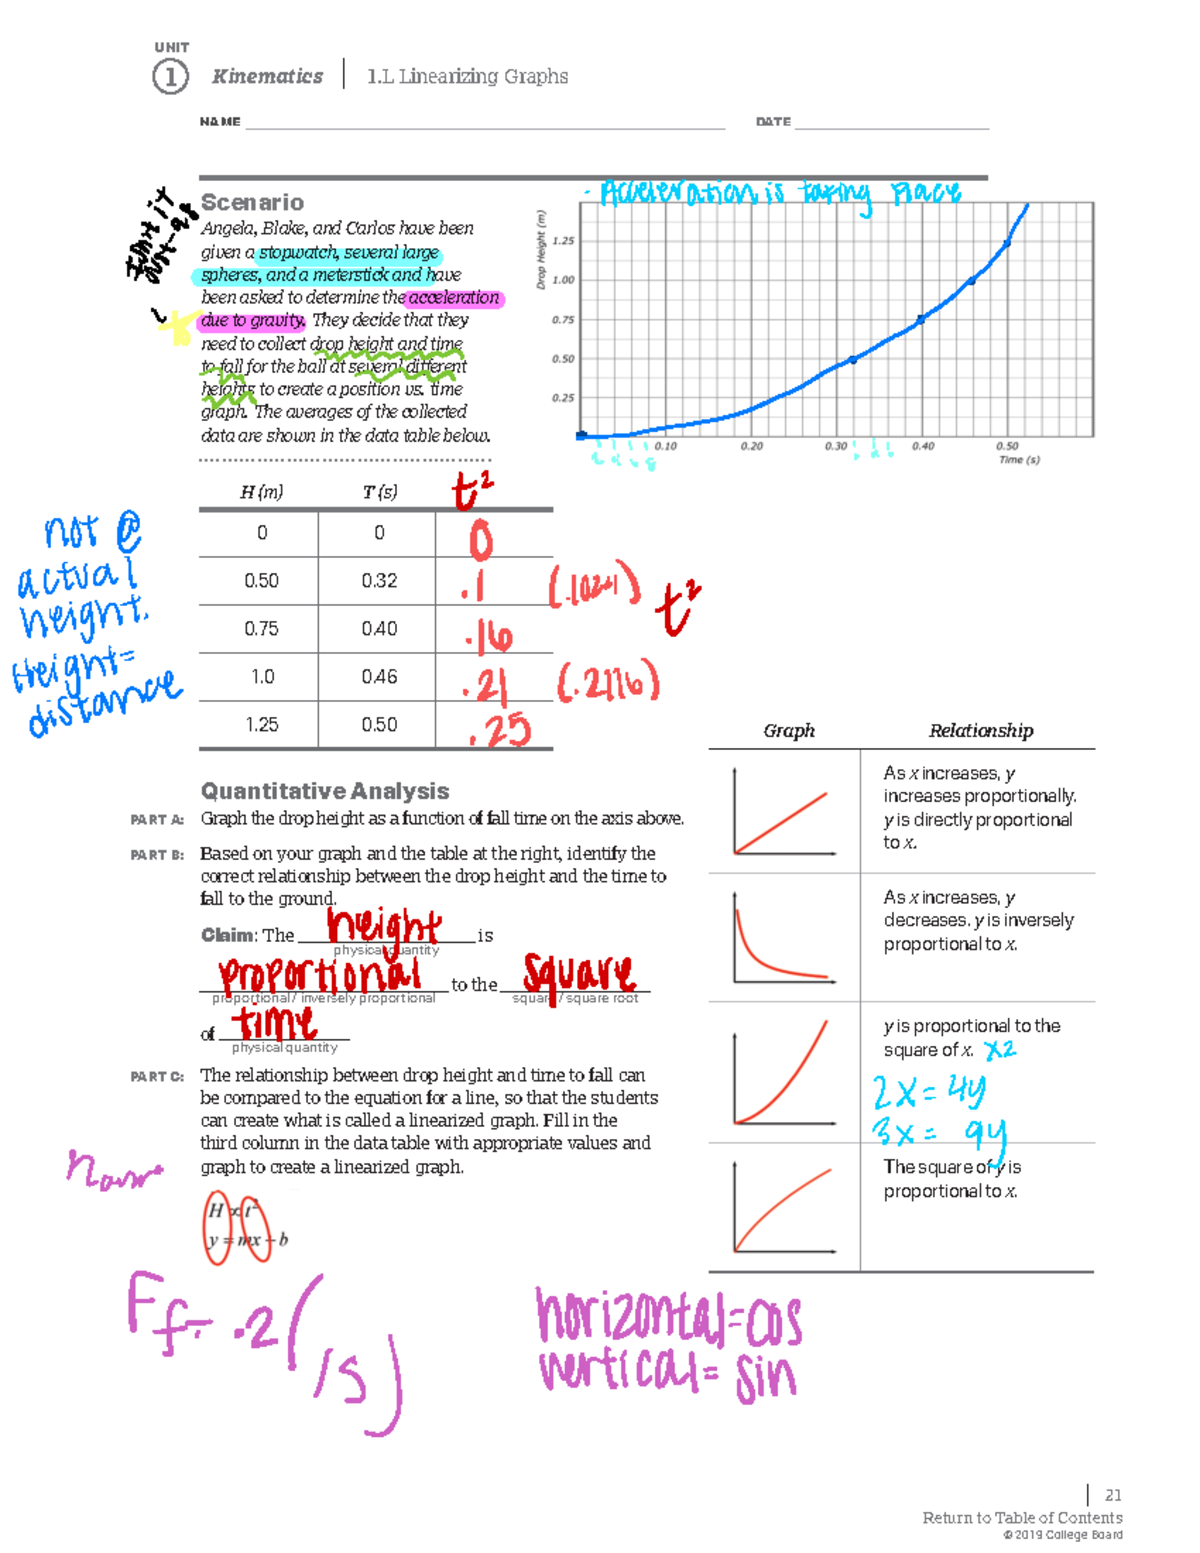 UNIT
1 Kinematics | 1.L Linearizing Graphs
NAME DATE
Scenario
Angela, Blake, and Carlos have been
given a stopwatch, several large
spheres, and a meterstick and have
been asked to determine the acceleration
due to gravity. They decide that they
need to collect drop height and time
to fall for the ball at several different
heights to create a position vs. time
graph. The averages of the collected
data are shown in the data table below.
- Acceleration is taking place
Drop Height (m)
1.25
1.00
0.75
0.50
0.25
0.10 0.20 0.30 0.40 0.50
Time (s)
H (m) T (s) t²
0 0 0
0.50 0.32 .1 (.1024) t²
0.75 0.40 .16
1.0 0.46 .21 (.2116)
1.25 0.50 .25
not @
actual
height.
Height=
distance
Quantitative Analysis
PART A: Graph the drop height as a function of fall time on the axis above.
PART B: Based on your graph and the table at the right, identify the
correct relationship between the drop height and the time to
fall to the ground.
Claim: The height is
physical quantity
proportional to the square
proportional / inversely proportional square / square root
of time
physical quantity
PART C: The relationship between drop height and time to fall can
be compared to the equation for a line, so that the students
can create what is called a linearized graph. Fill in the
third column in the data table with appropriate values and
graph to create a linearized graph.
H ∝ t²
y = mx + b
Graph Relationship
As x increases, y
increases proportionally.
y is directly proportional
to x.
As x increases, y
decreases. y is inversely
proportional to x.
y is proportional to the
square of x. x2
2x = 4y
3x = 9y
The square of y is
proportional to x.
Ff= .2(15)
horizontal=cos
vertical= sin
21
Return to Table of Contents
© 2019 College Board